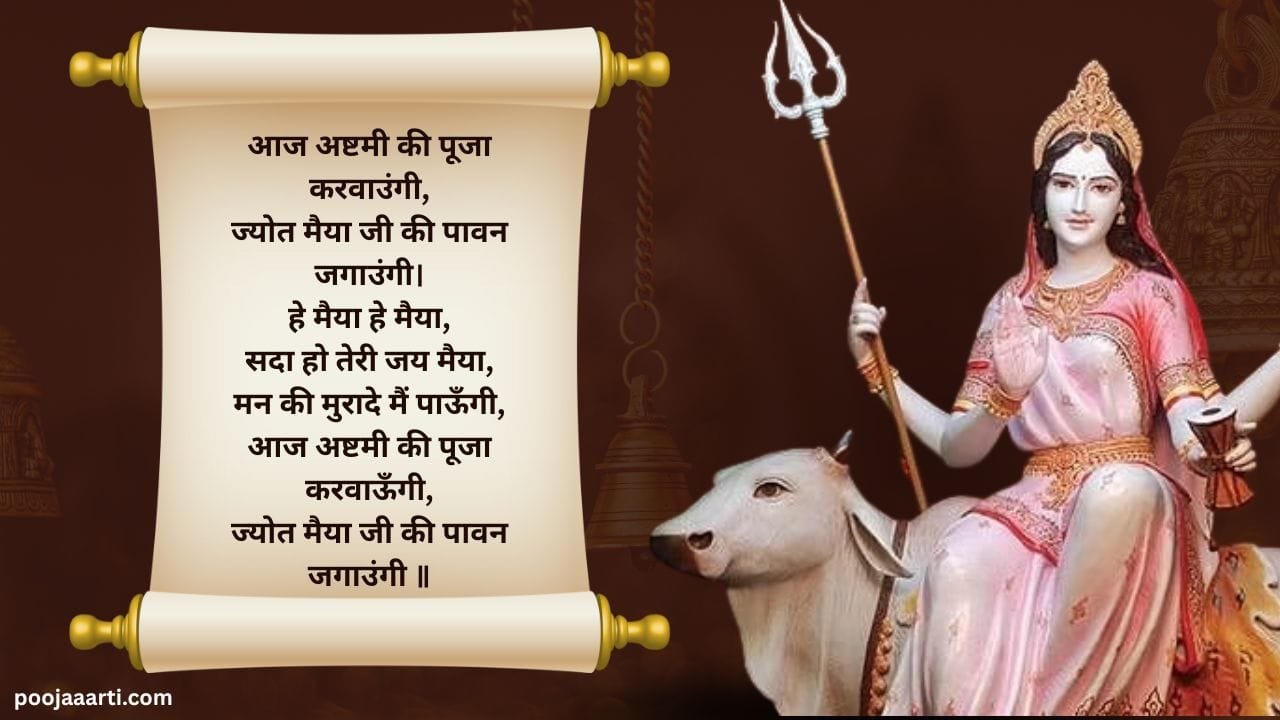 आज अष्टमी की पूजा
करवाउंगी,
ज्योत मैया जी की पावन
जगाउंगी।
हे मैया हे मैया,
सदा हो तेरी जय मैया,
मन की मुरादे मैं पाऊँगी,
आज अष्टमी की पूजा
करवाऊँगी,
ज्योत मैया जी की पावन
जगाउंगी ॥
poojaaarti.com